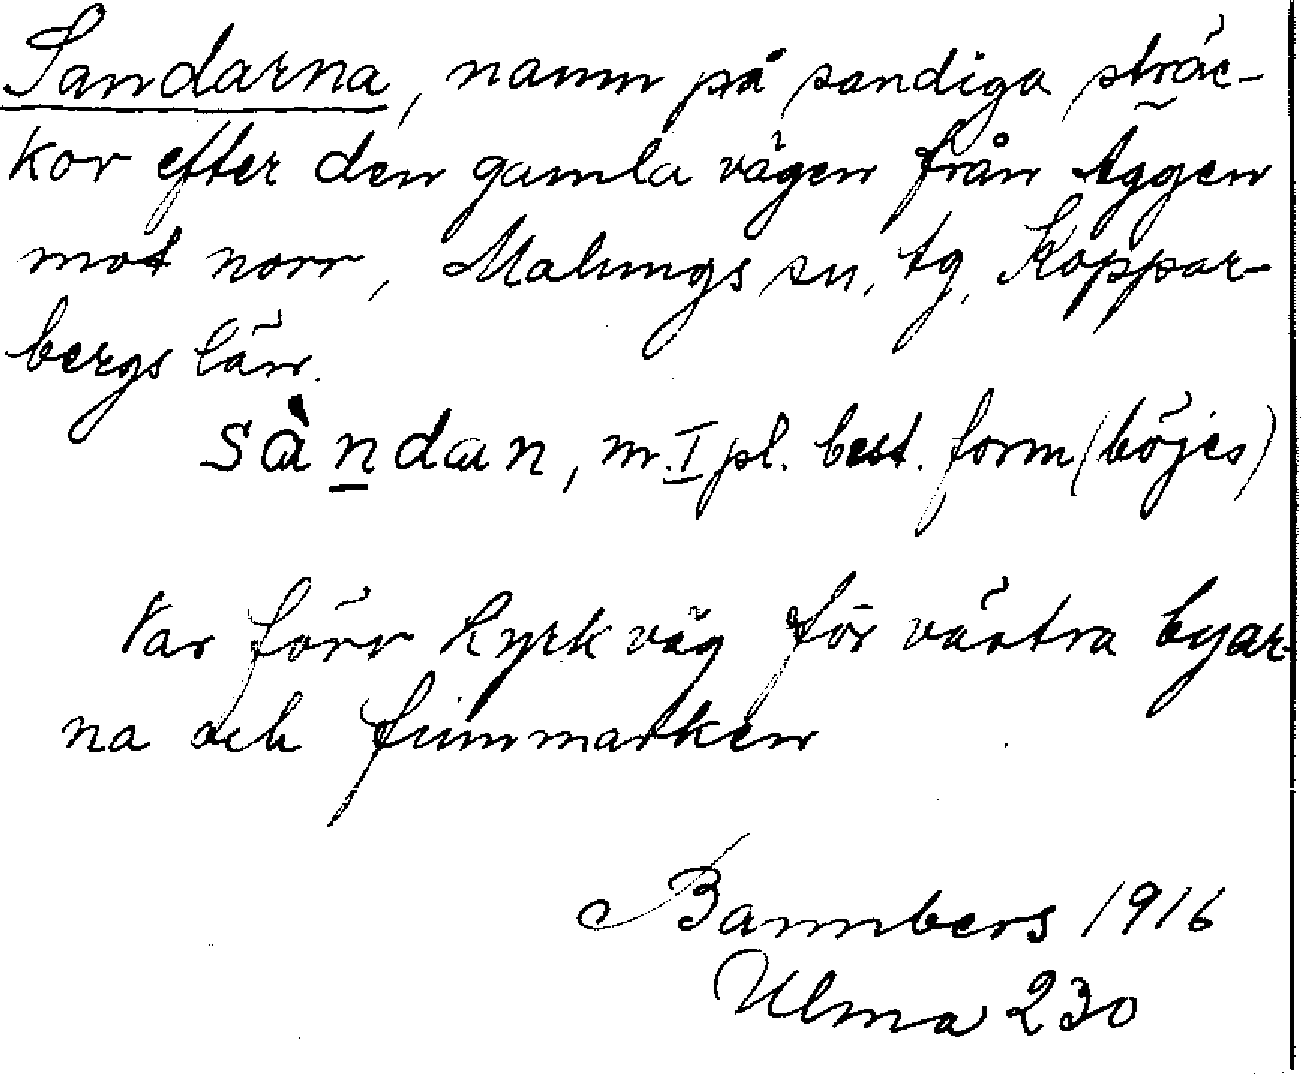 Sandarna, namn på sandiga sträc-
kor efter den gamla vägen från Äggen
mot norr, Malungs sn, tg, Koppar-
bergs län.
sàn̲dan, m. I pl. best. form (böjes)
Var förr kyrkväg för västra byar-
na och finnmarken
Bannbers 1916
Ulma 230